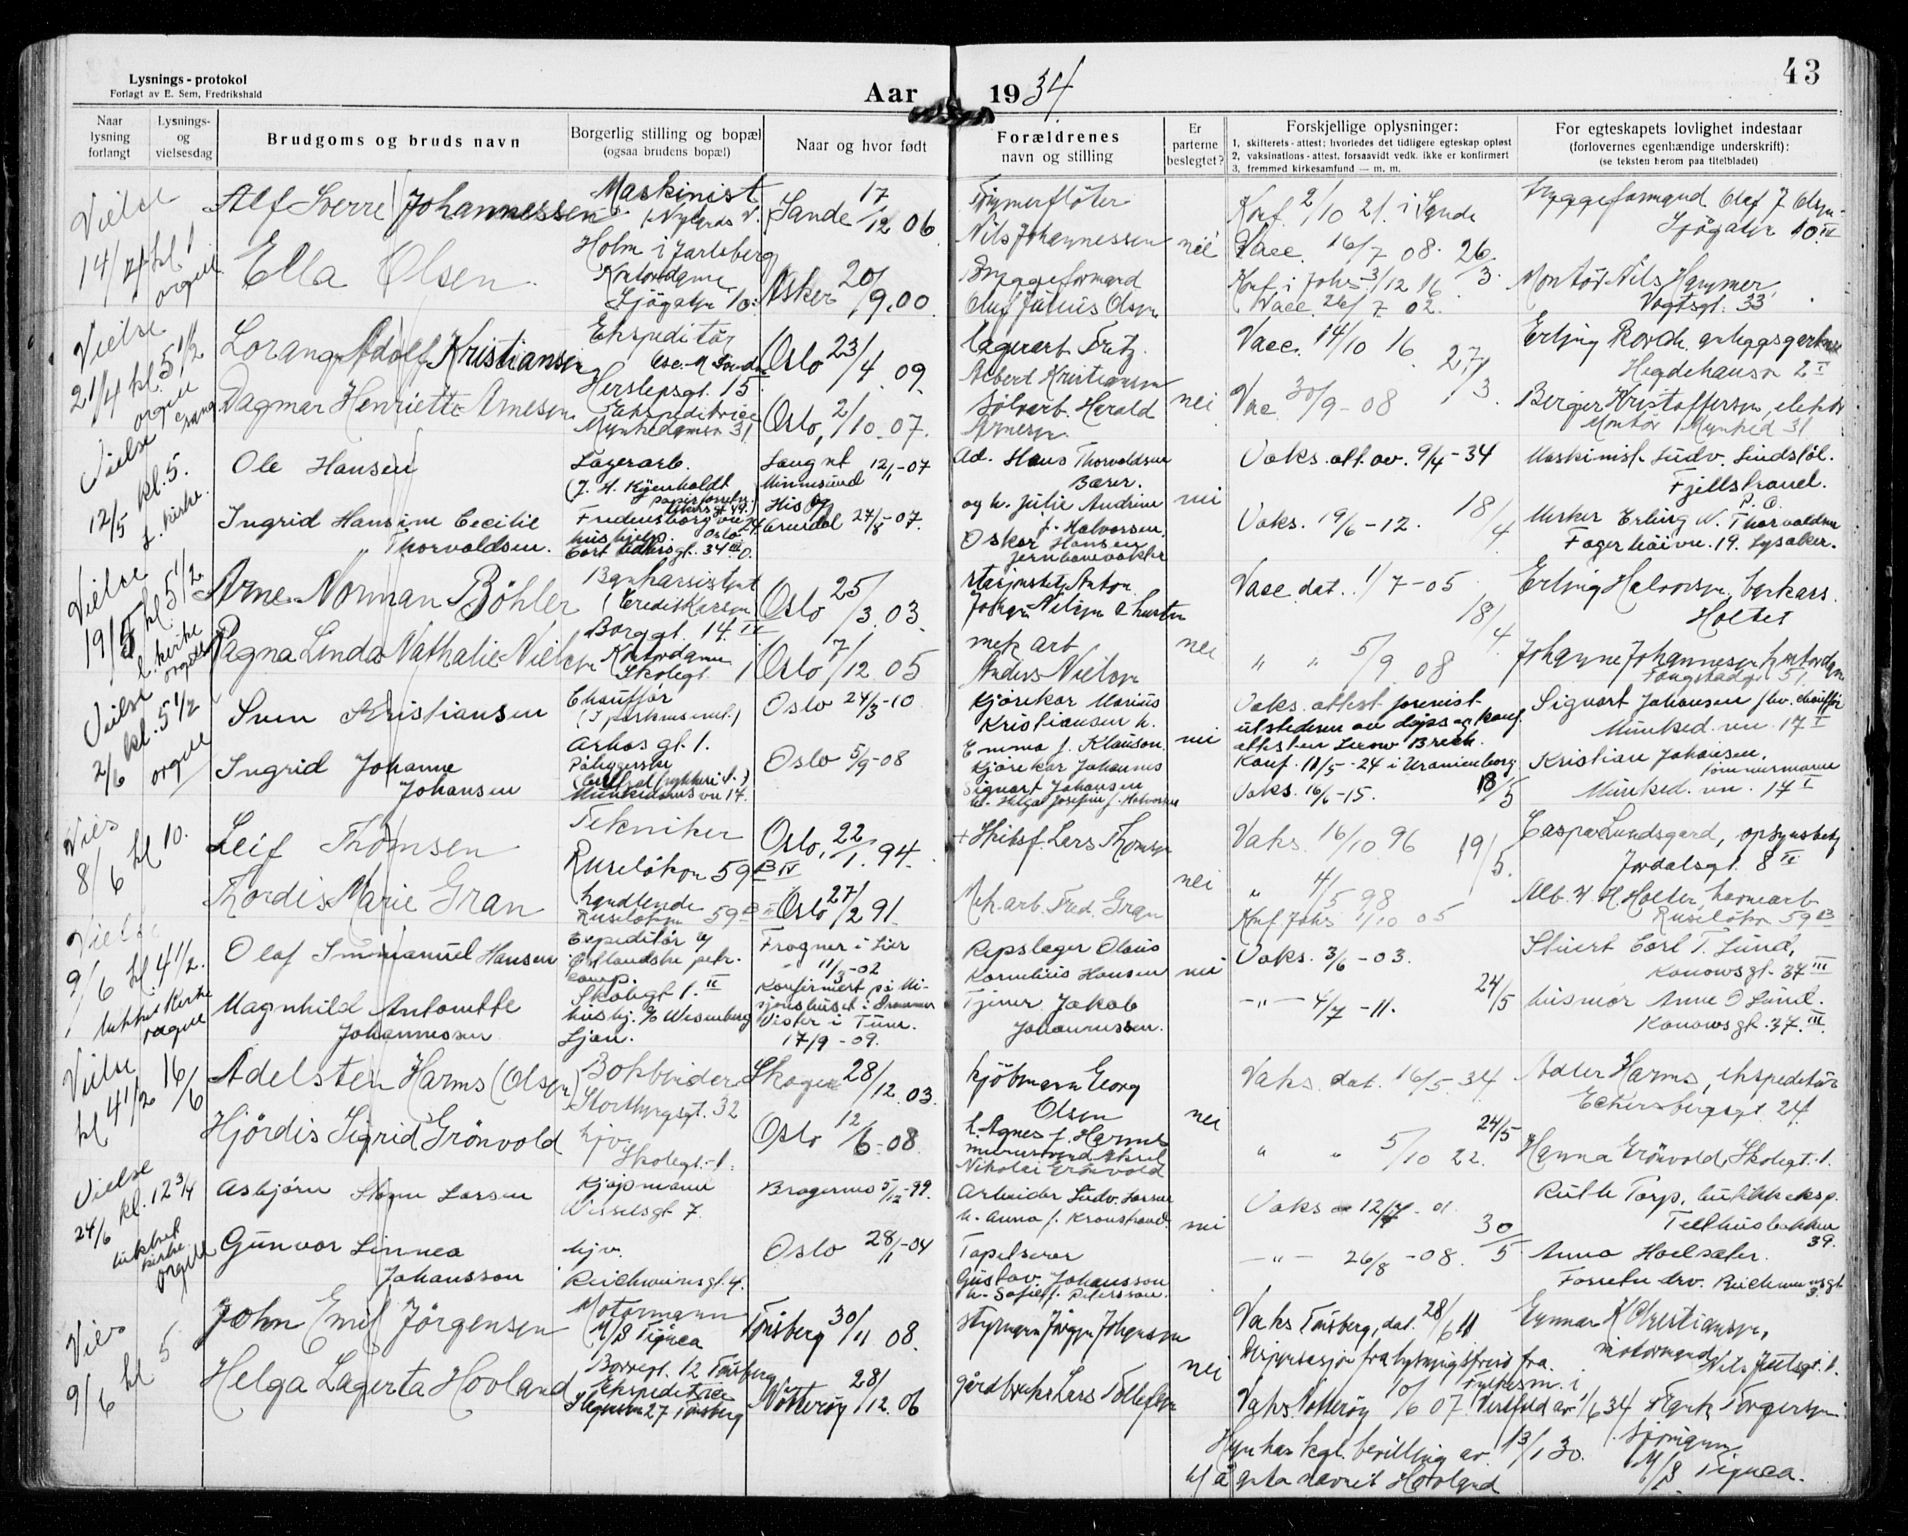 Lysnings-protokol
Forlagt av E. Sem, Fredrikshald
Aar 1934
43
Naar lysning forlangt
Lysnings- og vielsesdag
Brudgoms og bruds navn
Borgerlig stilling og bopæl
(ogsaa brudens bopæl)
Naar og hvor født
Forældrenes
navn og stilling
Er parterne beslegtet?
Forskjellige oplysninger:
1. skifterets-attest; hvorledes det tidligere egteskap opløst
2. vaksinations-attest, forsaavidt vedk. ikke er konfirmert
3. fremmed kirkesamfund — m. m.
For egteskapets lovlighet indestaar
(forlovernes egenhændige underskrift):
(se teksten herom paa titelbladet)
Vielse
14/4 kl 1
orgel
Alf Sverre Johannessen
Maskinist
Holm i Jarlsberg
Sande 17/12 06
Nils Johannessen
nei
Konf 2/10 21. i Sande
Vacc. 16/7 08. 26/3.
Bryggeformand Olaf J. Olsen
Sjøgatn 10 IV
Ella Olsen
Kontordame
Sjøgatn 10
Asker 20/9.00
Bryggeformand
Olaf Julius Olsen
Konf i Johs 3/12 16
Vacc. 26/7 02.
Montør Nils Hammer
Vogtsgt. 33
Vielse
21/4 kl. 5 1/2
orgel
sang
Lorang Adolf Kristiansen
Ekspeditør
Herslepsgt. 15
Oslo 23/4 09.
Lagerarb. Fritz
Albert Kristiansen
nei
Vacc. 14/10 16. 27/3.
Hegdehausn 2 I
Dagmar Henriette Arnesen
Ekspeditrice
Munkedamsv 31
Oslo, 2/10.07.
Sølvarb. Harald
Arnesen.
Vac 30/9-08
Berger Kristoffersen, elektr
Montør Munked 31
Vielse
12/5 kl. 5.
j. kirke.
Ole Hansen
Lagerarb.
(J. H. Kjenholdt
Fredensborgvn 24
Oslo
Langnt 12/1-07
Minnesund
Ad. Hans Thorvaldsen
Bærer.
og h. Julie Andrine
f. Halvorsen.
nei
Vaks. att. av. 9/4-34
18/4
Maskinist Ludv. Lindstøl.
Fjellstrand.
P. O.
Ingrid Hansine Cecilie
Thorvaldsen.
hushjelp.
His pg
Arendal 27/8-07.
Oskar Hansen
jernbanevokter
Vaks. 19/6-12.
Murker Erling N. Thorvaldsen
Fagerhöivn. 19. Lysaker.
Vielse
19/5 kl 5 1/2
j. kirke
orgel
Arne Norman Bøhler
Bankassistent
(Creditkassen
Borggt. 14. IV
Oslo 25/3.03.
Stasjonsbetj. Anton
nei
Vacc dat. 1/7-05
18/4.
Erling Halvorsen, bankass.
Holtet
Ragna Linda Nathalie Nielsen
Kontordame
Skolegt. 1
Oslo 7/12 05
mek arb
Anders Nielsen
" " 5/9 08
Johanne Johannesen, kontordame
Vielse
2/6 kl. 5 1/2
orgel
Sven Kristiansen
Chauffør
Arbosgt. 1.
Oslo 24/3-10
Kjørekar Marius
Kristiansen h.
Emma f. Klausen.
nei
Vaks. attest forevist
utstederen av dåps og konf.
attesten
Sigvart Johansen chauffør
Munked. vn. 17 I
Ingrid Johanne
Johansen
Påleggerske
Munkedamsvn 17.
Oslo 5/9-08
Kjørekar Johannes
Sigvart Johansen
h. Helga Josefine f. Halvorsen
Konf. 18/5-24 i Uranienborg
Vaks. 16/6-15. 18/5
Kristian Johansen,
tømmermann
Munked. vn. 17 I
Vies
8/6 kl 10.
Leif Thomsen
Tekniker
Ruseløkvn 59 B IV
Oslo, 22/1.94.
+ Skibsf. Lars Thomsen
nei
Vaks. 16/10 96
19/5.
Caspar Lundsgard, opsynsbetj
Jordalsgt. 8 II
Thordis Marie Gran
handlende
Ruseløkvn 59 B
Oslo 27/2 91
Mek. arb. Fred. Gran
" 4/5 98
Konf. Johs 1/10 05
Alb. W. H. Holter, havnearb
Ruseløkvn 59 B
Vielse
9/6 kl 4 1/2.
lukket kirke
orgel
Olaf Immanuel Hansen
Expeditør v/
Østlandske petr.
komp.
Skolegt 1. II
Frogner i Lier
11/3-02
Konfirmert på Mi-
sjonshuset i Drammen
Repslager Olaus
Kornelius Hansen
nei
Vaks. 3/6-03.
24/5
Stuert Carl T. Lund,
Konowsgt. 37 III
Magnhild Antonette
Johannessen
husbj. c/o Wesenberg
Ljan.
Vister i Tune.
17/9-09.
Tjener Jakob
Johannessen.
-"- 4/7-11.
husmor Anne O Lund.
Konowsgt. 37. III.
Vielse 16/6
kl 4 1/2
Adelsten Harms (Olsen)
Bokbinder
Stortingsgt. 32
Skoger 28/12.03.
Kjøbmann Georg
Olsen
h. Agnes f. Harms
nei
Vaks. dat. 16/5.34.
24/5
Adler Harms, ekspeditør
Eckersbergsgt. 24.
Hjørdis Sigrid Grönvold
hjv.
Skolegt. 1.
Oslo 12/6-08.
Nikolai Grönvold
" " 5/10 22.
Hanna Grönvold, Skolegt. 1.
Vielse
24/6 kl. 12 3/4
lukket
kirke
orgel
Asbjørn Stogn Larsen
Kjøpmann
Wesselsgt 7.
Bragernes 5/12-99.
Arbeider Ludv. Larsen
h. Anna f. Kronstrand.
nei
Vaks 12/7-01
30/5
Ruth Torp, butikkeksp.
Telthusbakken
39.
Gunvor Linnea
Johansson
hjv.
Reichweinsgt. 4.
Oslo 28/1-04
Tapetserer
Gustav Johansson
h. Sofie f. Petersson.
-"- 26/8-08.
Anna Hoelsæter.
Vies
9/6 kl 5
John Emil Jörgensen
Motormann
M/S Tignea
Borregt. 12 Tønsberg
Tønsberg 30/11 08.
Styrmann Jørgen Johansen
nei
Vaks Tønsberg, dat. 28/6 11
Dispensasjon fra lysningsfrist fra
Fylkesm. i
Vestfold av 1/6 34
Gunnar K Christiansen,
motormand
Nils Juelsgt. 1.
Helga Lagerta Hovland
Ekspeditrice
Tønsberg
Nøtterøy 28/12.06
gårdbruker Lars Tollefsen
Vaks. Nøtterøy 10/6 07.
Hun har kgl. bevilling av 13/1 30.
til å anta navnet Hovland
M/S Tignea.